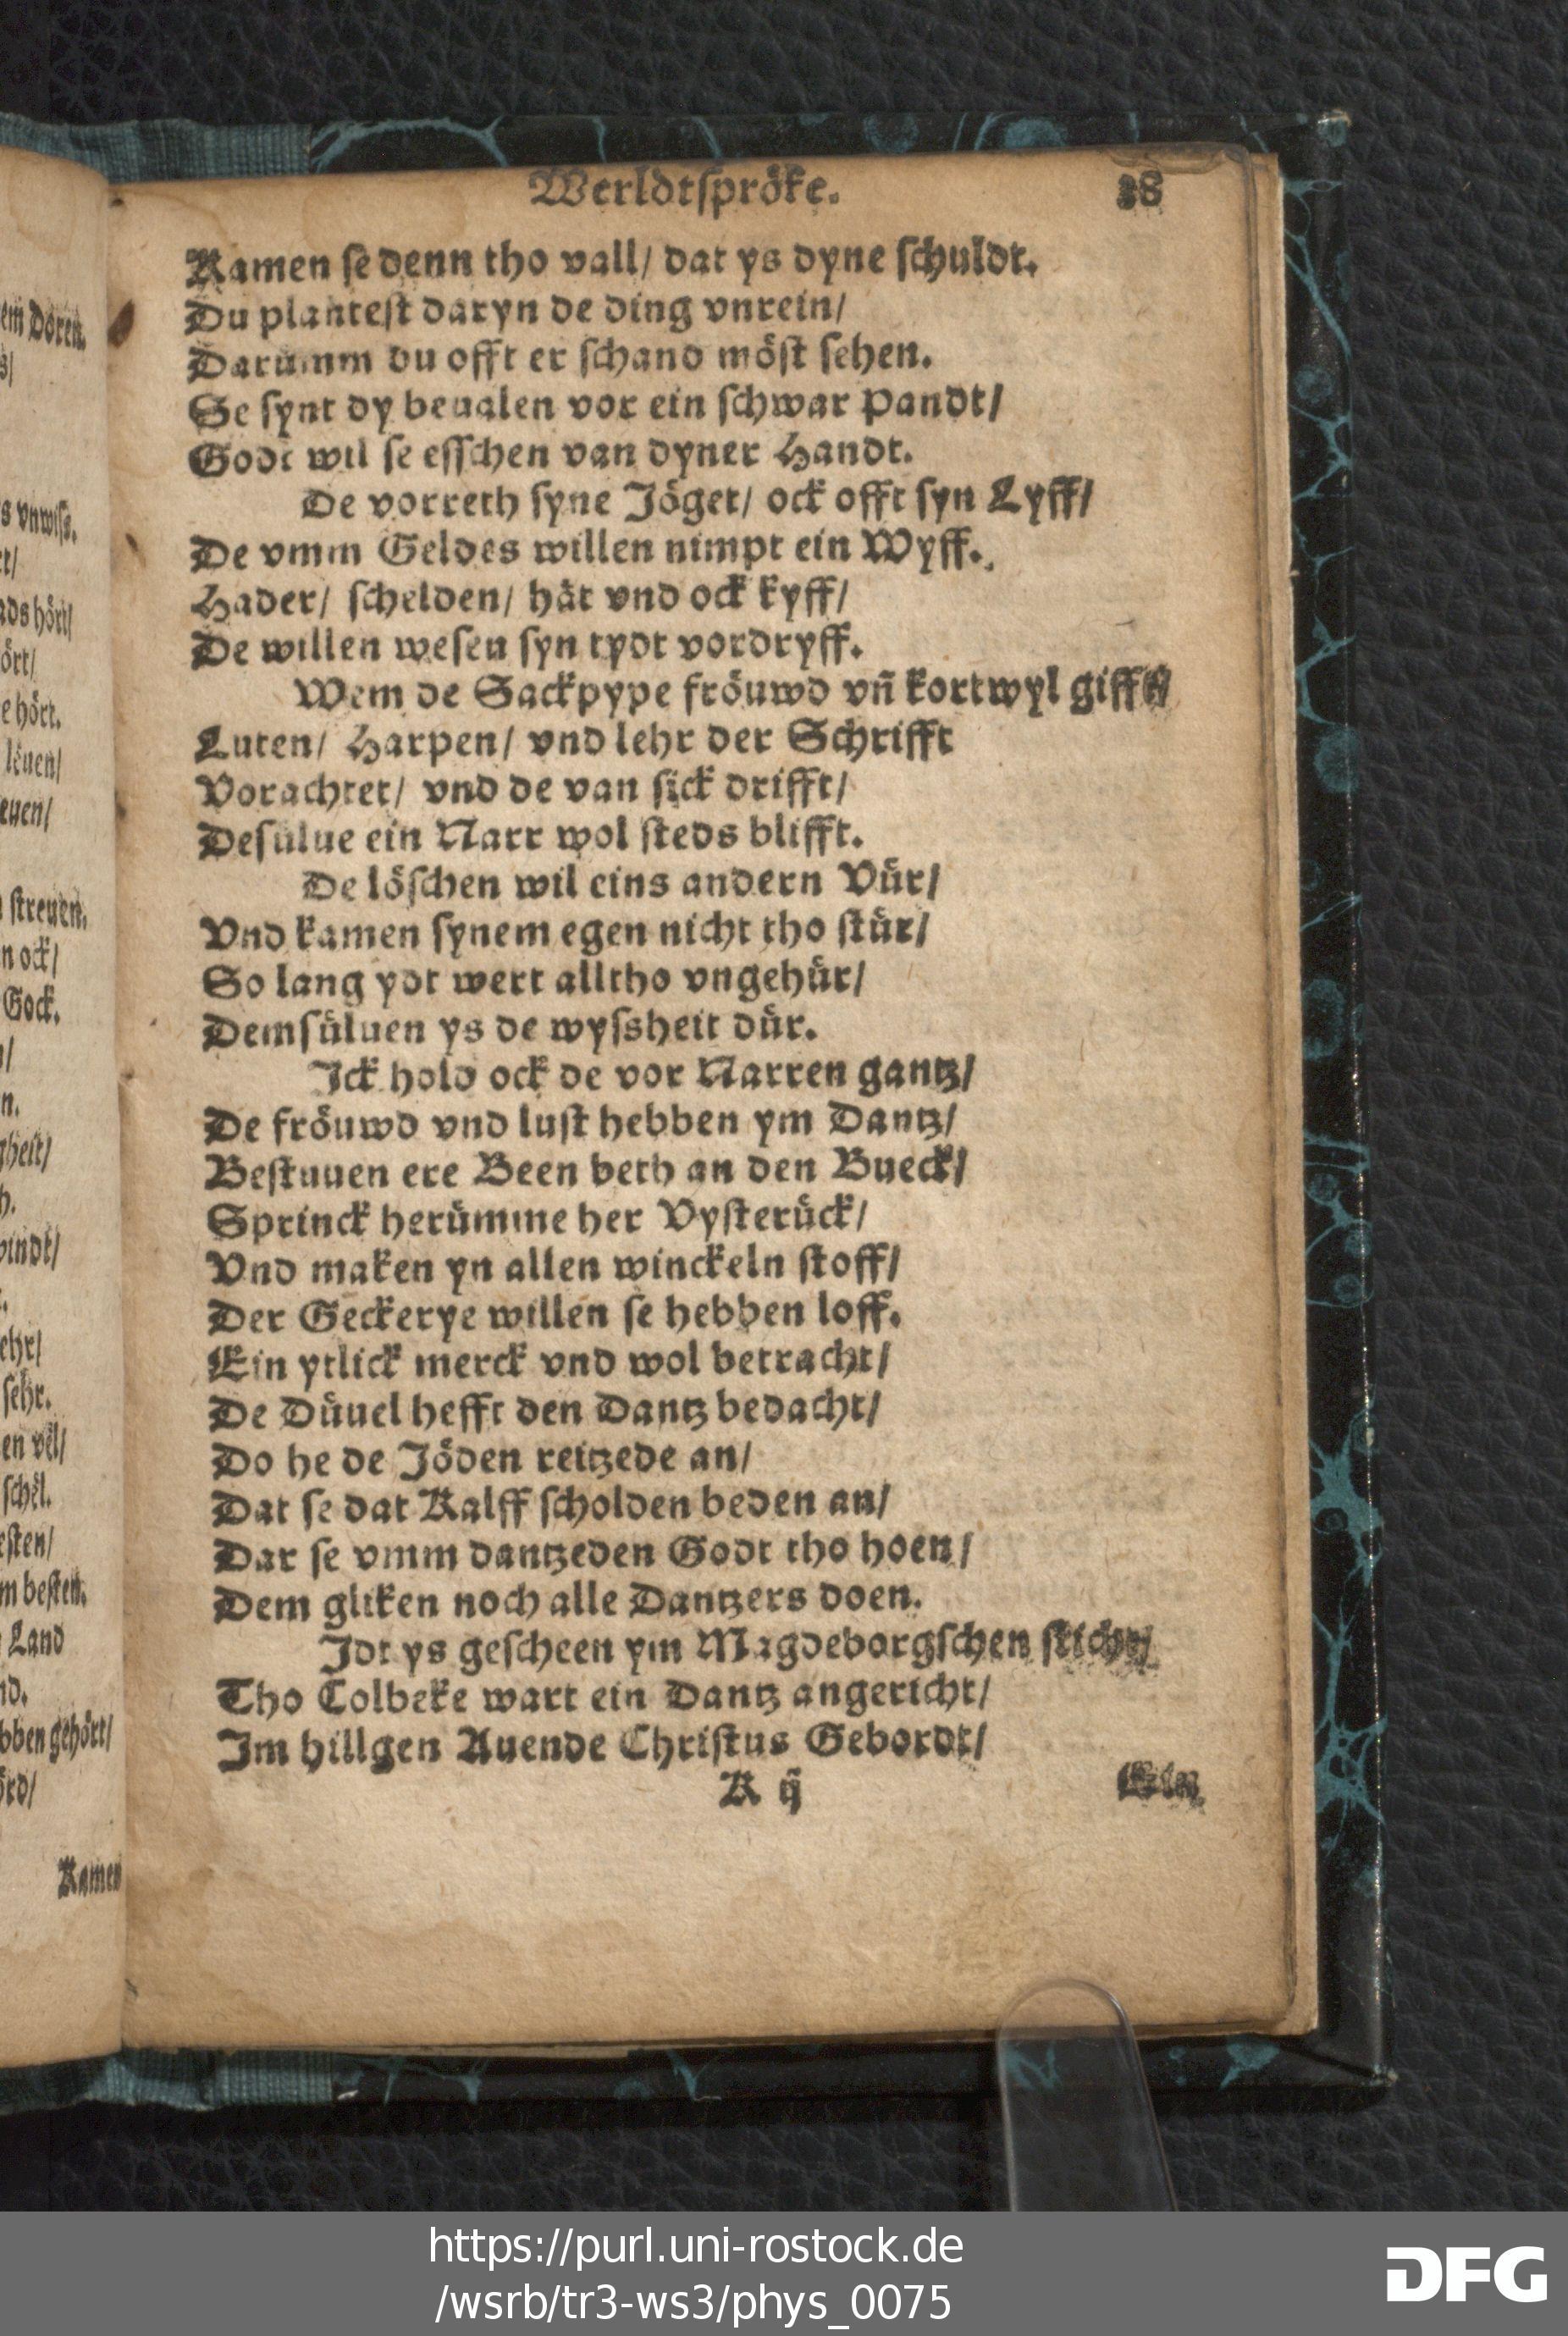 Werldtspröke. 38
Kamen se denn tho vall/ dat ys dyne schuldt.
Du plantest daryn de ding vnrein/
Darumm du offt er schand möst sehen.
Se synt dy beualen vor ein schwar Pandt/
Godt wil se esschen van dyner Handt.
De vorreth syne Jöget/ ock offt syn Lyff/
De vmm Geldes willen nimpt ein Wyff.
Hader/ schelden/ hät vnd ock kyff/
De willen wesen syn tydt vordryff.
Wem de Sackpype fröuwd vñ kortwyl gifft/
Luten/ Harpen/ vnd lehr der Schrifft
Vorachtet/ vnd de van sick drifft/
Desülue ein Narr wol steds blifft.
De löschen wil eins andern Vür/
Vnd kamen synem egen nicht tho stür/
So lang ydt wert alltho vngehür/
Demsüluen ys de wyssheit dür.
Ick hold ock de vor Narren gantz/
De fröuwd vnd lust hebben ym Dantz/
Bestuuen ere Been beth an den Bueck/
Sprinck herümme her Vysterück/
Vnd maken yn allen winckeln stoff/
Der Geckerye willen se hebben loff.
Ein ytlick merck vnd wol betracht/
De Düuel hefft den Dantz bedacht/
Do he de Jöden reitzede an/
Dat se dat Kalff scholden beden an/
Dar se vmm dantzeden Godt tho hoen/
Dem gliken noch alle Dantzers doen.
Idt ys gescheen ym Magdeborgschen sticht/
Tho Colbeke wart ein Dantz angericht/
Im hillgen Auende Christus Gebordt/
K ij Ein
em Doren.
s/
s vnwiss.
rt/
ads hört/
ört/
e hört.
leuen/
euen/
streuen.
n ock/
Gock.
n.
gheit/
h.
vindt/
ehr/
sehr.
en vël/
schël.
esten/
m besten.
Land
nd.
bben gehört/
örd/
Kamen
https://purl.uni-rostock.de
/wsrb/tr3-ws3/phys_0075
DFG